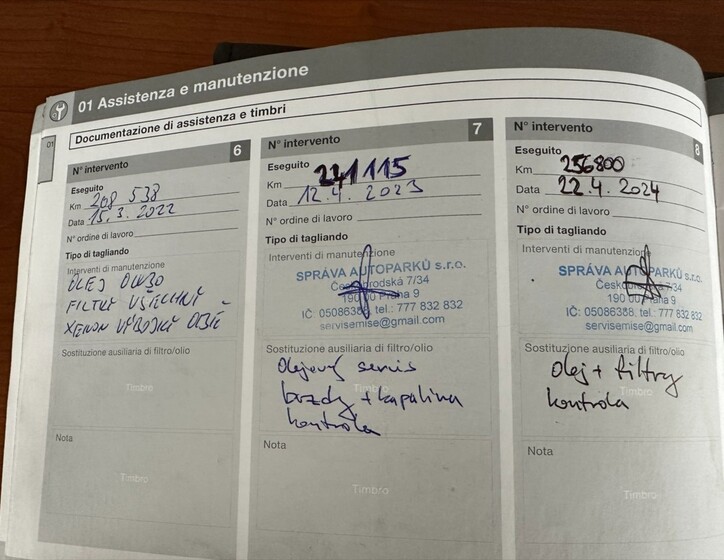 01 Assistenza e manutenzione
01
Documentazione di assistenza e timbri
N° intervento 6
Eseguito
Km 208 538
Data 15. 3. 2022
N° ordine di lavoro
Tipo di tagliando
Interventi di manutenzione
OLEJ
FILTRY VŠECHNY
XENON VÝBOJKY OBĚ
Sostituzione ausiliaria di filtro/olio
Timbro
Nota
Timbro
N° intervento 7
Eseguito
Km 241115
Data 12. 4. 2023
N° ordine di lavoro
Tipo di tagliando
Interventi di manutenzione
SPRÁVA AUTOPARKŮ s.r.o.
Českobrodská 7/34
190 00 Praha 9
IČ: 05086388, tel.: 777 832 832
servisemise@gmail.com
Sostituzione ausiliaria di filtro/olio
Olejový servis
brzdy + kapalina
kontrola
Nota
Timbro
N° intervento 8
Eseguito
Km 256800
Data 22. 4. 2024
N° ordine di lavoro
Tipo di tagliando
Interventi di manutenzione
SPRÁVA AUTOPARKŮ s.r.o.
Českobrodská 7/34
190 00 Praha 9
IČ: 05086388, tel.: 777 832 832
servisemise@gmail.com
Sostituzione ausiliaria di filtro/olio
olej + filtry
Timbro
kontrola
Nota
Timbro